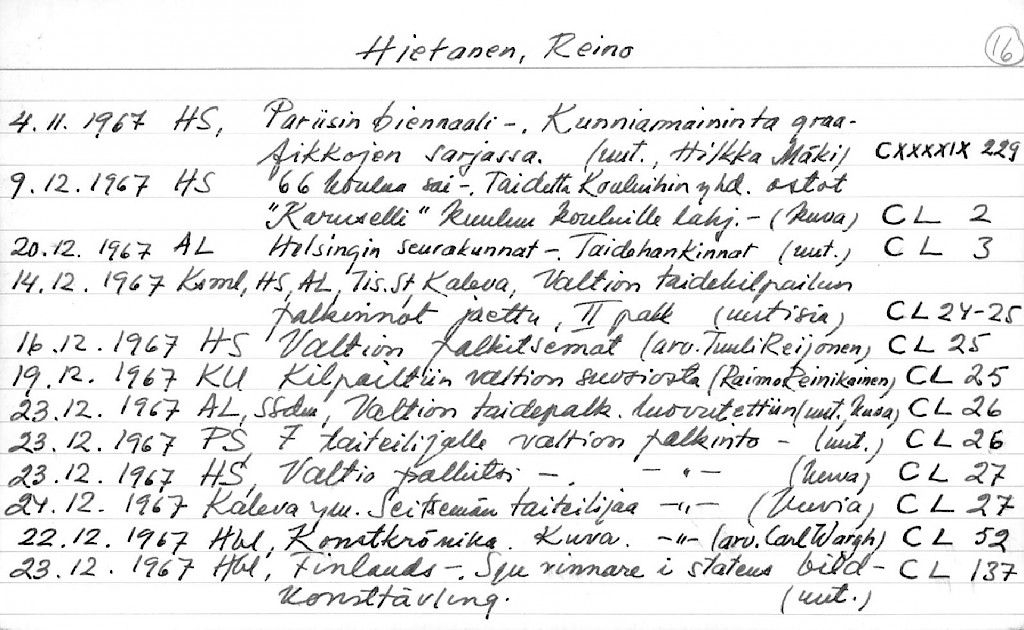 Hietanen, Reino 16
4.11.1967 HS, Pariisin biennaali -. Kunniamaininta graa-
fikkojen sarjassa. (uut., Hilkka Mäki) CXXXXIX 229
9.12.1967 HS 66 koulua sai -. Taidetta Kouluihin yhd. ostot
"Karuselli" kuuluu kouluille lahj. - (kuva) CL 2
20.12.1967 AL Helsingin seurakunnat - Taidehankinnat (uut.) CL 3
14.12.1967 Ksml, HS, AL, Tis.St Kaleva, Valtion taidekilpailun
palkinnot jaettu, II palk (uutisia) CL 24-25
16.12.1967 HS Valtion palkitsemat (arv. Tuuli Reijonen) CL 25
19.12.1967 KU Kilpailtiin valtion suosiosta (Raimo Reinikainen) CL 25
23.12.1967 AL, SSdm, Valtion taidepalk. luovutettiin (uut, kuva) CL 26
23.12.1967 PS, 7 taiteilijalle valtion palkinto - (uut.) CL 26
23.12.1967 HS, Valtio palkitsi -. - " - (kuva) CL 27
24.12.1967 Kaleva ym. Seitsemän taiteilijaa -"- (kuvia) CL 27
22.12.1967 Hbl, Konstkrönika. Kuva. -"- (arv. Carl Wargh) CL 52
23.12.1967 Hbl, Finlands -. Sju vinnare i statens bild- CL 137
konsttävling. (uut.)